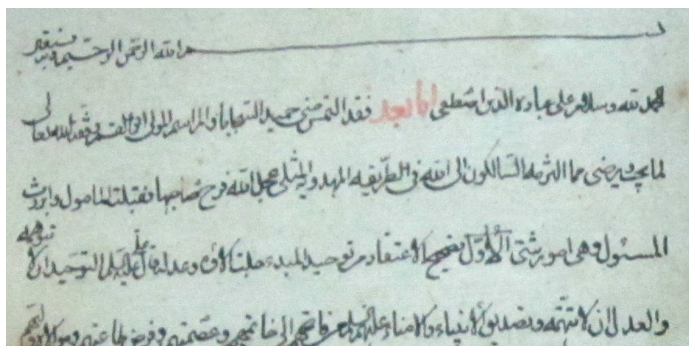 بسم الله الرحمن الرحيم وبه نستعين
الحمد لله وسلام على عباده الذين اصطفى اما بعد فقد التمس مني حميد السجايا والمراسم المولى ابو القسم وفقه الله تعالى
لما يحب ويرضى مما التزمه السالكون الى الله في الطريقه المهدويه المثلى عجل الله فرج صاحبها فقبلت المامول وابرزت
المسئول وهي امور شتى الاول تصحيح الاعتقاد من توحيد المبدء جلت الاؤه وعدله قال علي عليه السلم التوحيد ان لا تتوهمه
والعدل ان لا تتهمه وتصديق الانبياء والامناء عليهم السلم من فاتحهم الى خاتمهم وعصمتهم